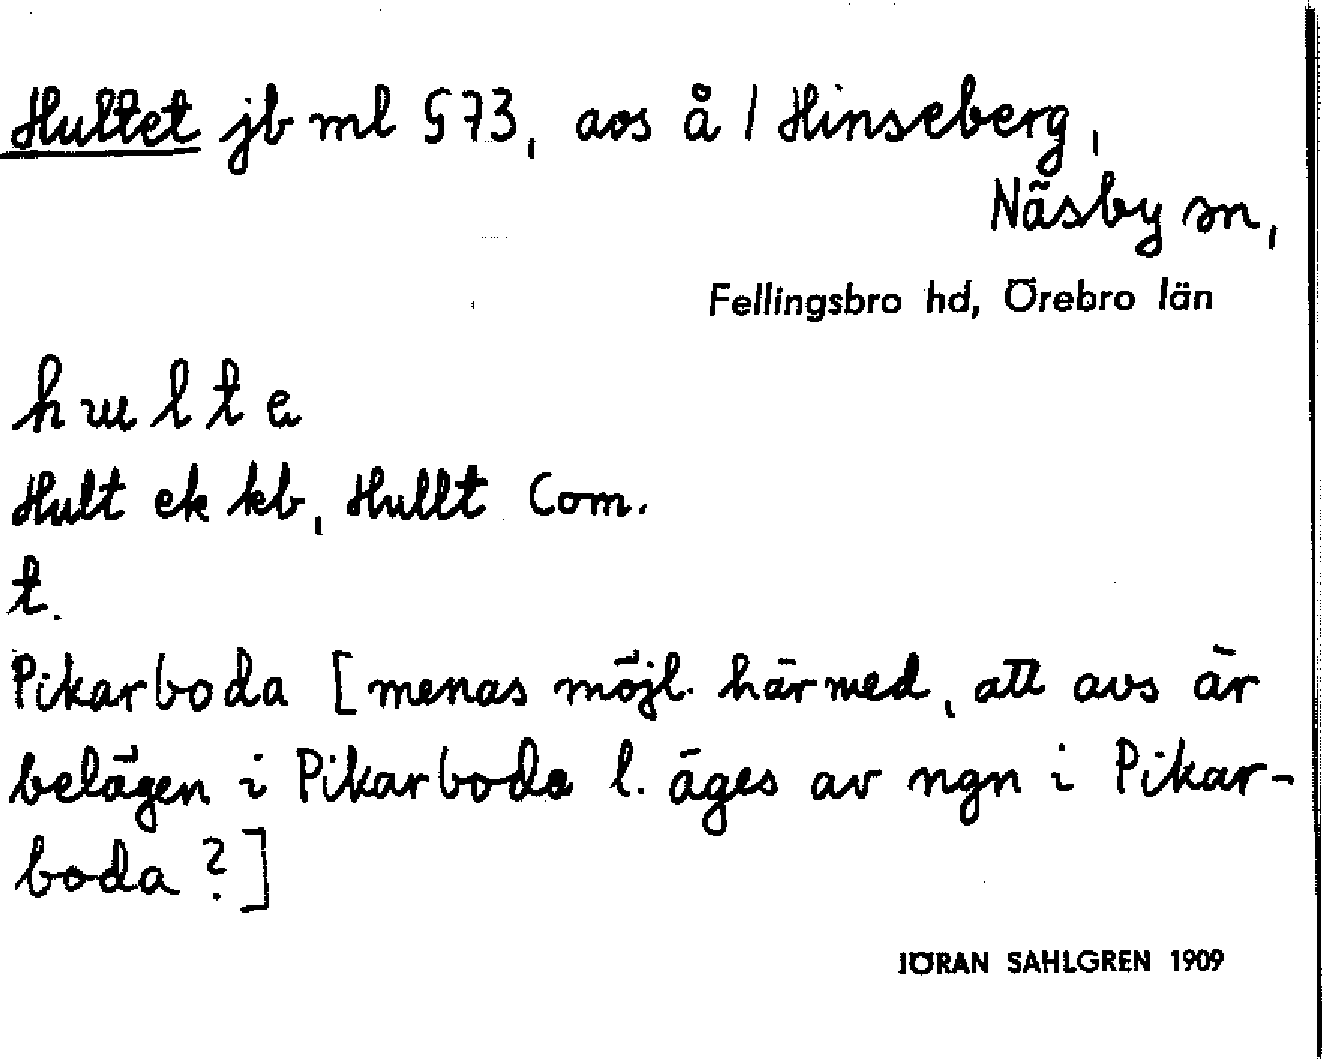 Hultet jb ml § 73, avs å / Hinseberg,
Näsby sn,
Fellingsbro hd, Örebro län
hulte
Hult ek kb, Hullt Com.
t.
Pikarboda [menas möjl. härmed, att avs är
belägen i Pikarboda l. äges av ngn i Pikar-
boda?]
JÖRAN SAHLGREN 1909